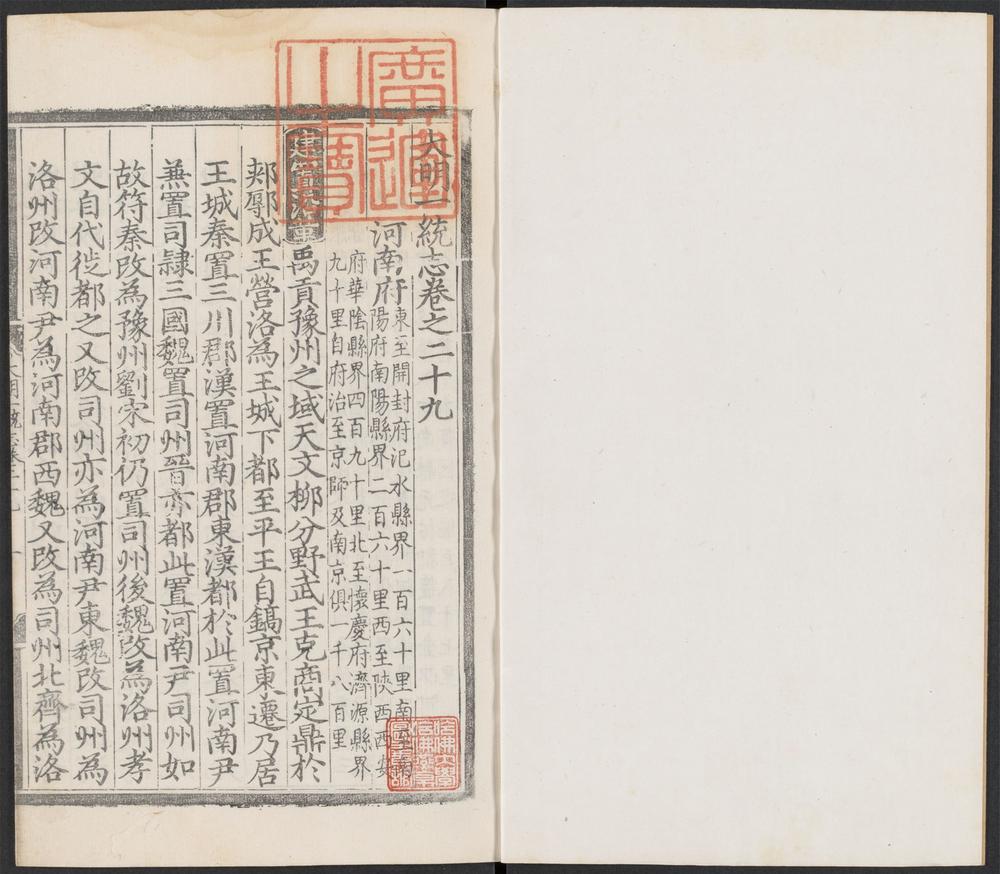 大明一統志卷之二十九
河南府
東至開封府汜水縣界一百六十里南至南
陽府南陽縣界二百六十里西至陝西西安
府華陰縣界四百九十里北至懷慶府濟源縣界
九十里自府治至京師及南京俱一千八百里
建置沿革 禹貢豫州之域天文柳分野武王克商定鼎於
郟鄏成王營洛為王城下都至平王自鎬京東遷乃居
王城秦置三川郡漢置河南郡東漢都於此置河南尹
兼置司隸三國魏置司州晉亦都此置河南尹司州如
故符秦改為豫州劉宋初仍置司州後魏改為洛州孝
文自代徙都之又改司州亦為河南尹東魏改司州為
洛州改河南尹為河南郡西魏又改為司州北齊為洛